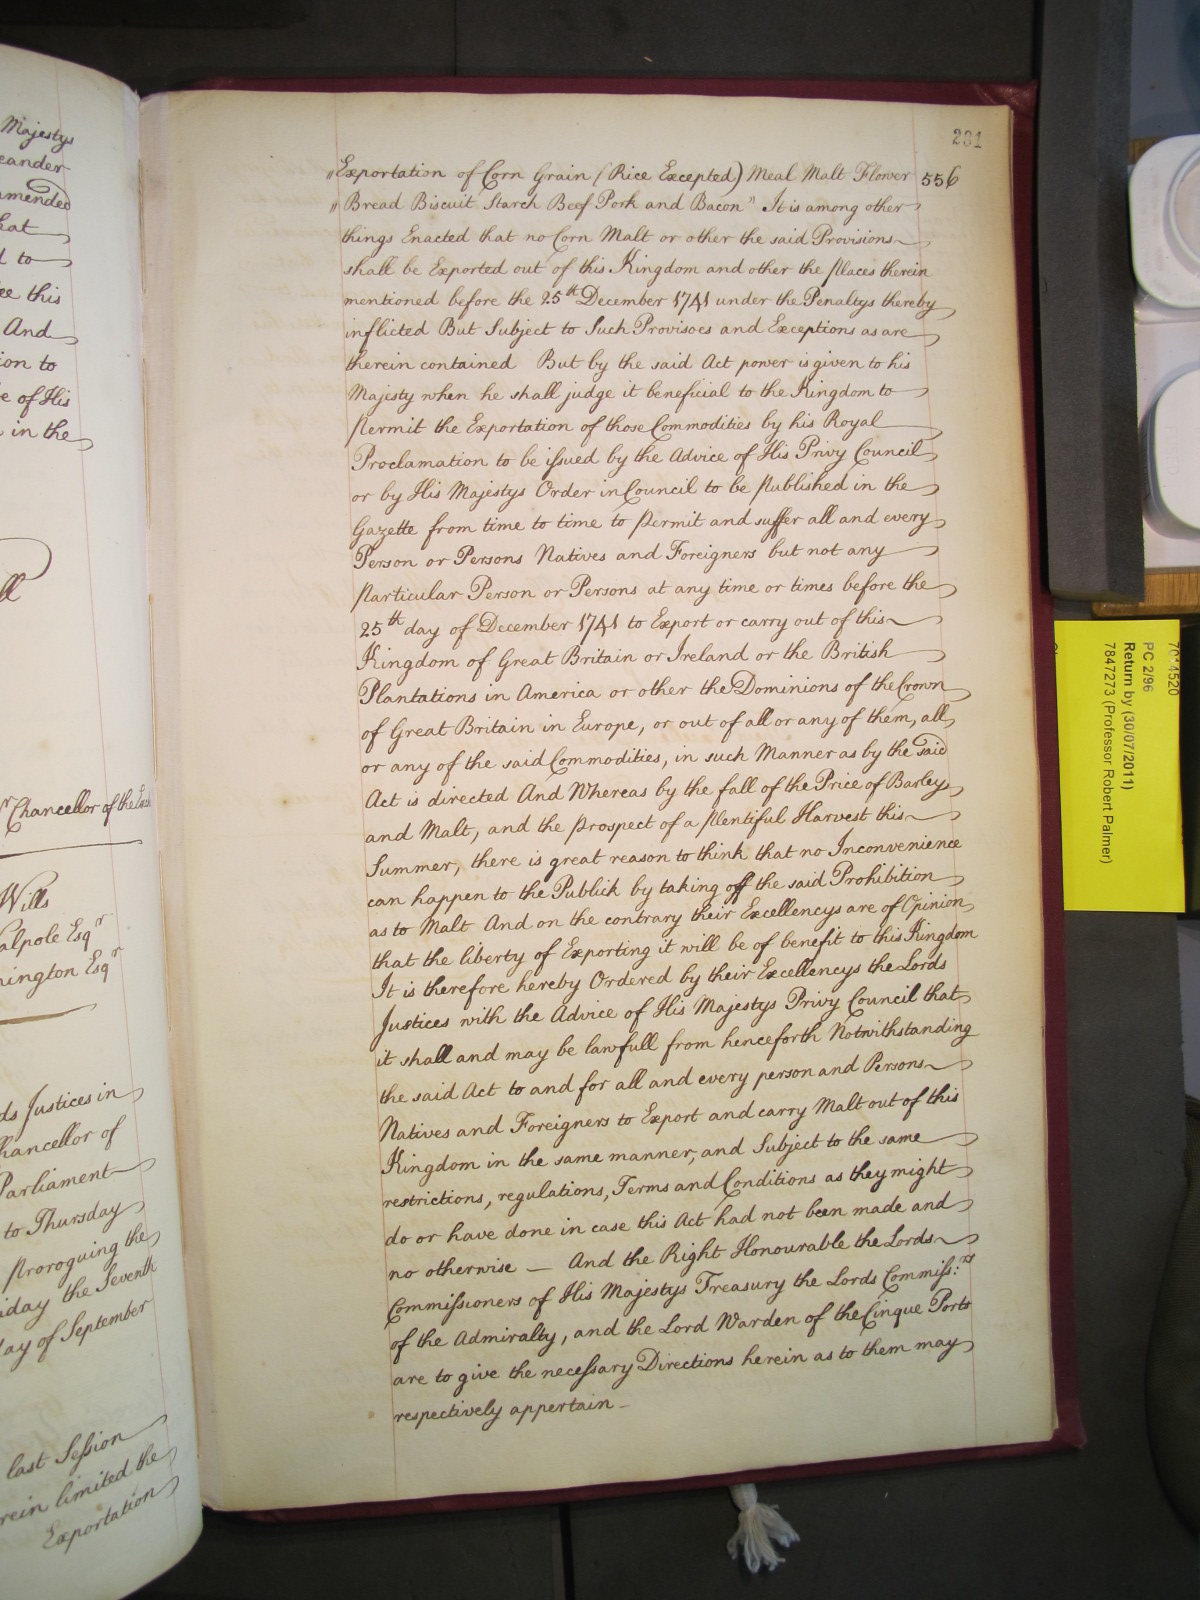 Majestys
eander
mmended
hat
d to
ee this
And
ion to
e of His
in the
ll
Chancellor of the
Wills
alpole Esqr
nington Esqr
ds Justices in
hancellor of
Parliament
to Thursday
proroguing the
day the Seventh
day of September
last Session
rein limited the
Exportation
231
556
"Exportation of Corn Grain (Rice Excepted) Meal Malt Flower
"Bread Biscuit Starch Beef Pork and Bacon" It is among other
things Enacted that no Corn Malt or other the said Provisions
shall be Exported out of this Kingdom and other the places therein
mentioned before the 25th December 1741 under the Penaltys thereby
inflicted But Subject to Such Provisoes and Exceptions as are
therein contained But by the said Act power is given to his
Majesty when he shall judge it beneficial to the Kingdom to
permit the Exportation of those Commodities by his Royal
Proclamation to be issued by the Advice of His Privy Council
or by His Majestys Order in Council to be published in the
Gazette from time to time to permit and suffer all and every
Person or Persons Natives and Foreigners but not any
particular Person or Persons at any time or times before the
25th day of December 1741 to Export or carry out of this
Kingdom of Great Britain or Ireland or the British
Plantations in America or other the Dominions of the Crown
of Great Britain in Europe, or out of all or any of them, all
or any of the said Commodities, in such Manner as by the said
Act is directed And Whereas by the fall of the Price of Barley
and Malt, and the prospect of a plentiful Harvest this
Summer, there is great reason to think that no Inconvenience
can happen to the Publick by taking off the said Prohibition
as to Malt And on the contrary their Excellencys are of Opinion
that the liberty of Exporting it will be of benefit to this Kingdom
It is therefore hereby Ordered by their Excellencys the Lords
Justices with the Advice of His Majestys Privy Council that
it shall and may be lawfull from henceforth Notwithstanding
the said Act to and for all and every person and Persons
Natives and Foreigners to Export and carry Malt out of this
Kingdom in the same manner, and Subject to the same
restrictions, regulations, Terms and Conditions as they might
do or have done in case this Act had not been made and
no otherwise — And the Right Honourable the Lords
Commissioners of His Majestys Treasury the Lords Commiss:rs
of the Admiralty, and the Lord Warden of the Cinque Ports
are to give the necessary Directions herein as to them may
respectively appertain -
7014520
PC 2/96
Return by (30/07/2011)
7847273 (Professor Robert Palmer)